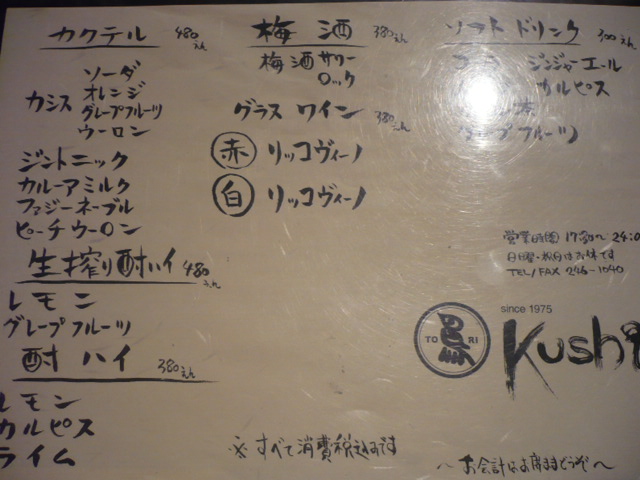 カクテル 480えん
カシス
ソーダ
オレンジ
グレープフルーツ
ウーロン
ジントニック
カルーアミルク
ファジーネーブル
ピーチウーロン
生搾り酎ハイ 480えん
レモン
グレープフルーツ
酎ハイ 380えん
レモン
カルピス
ライム
梅酒 380えん
梅酒サワー
ロック
グラスワイン 380えん
赤 リッコヴィーノ
白 リッコヴィーノ
ソフトドリンク 300えん
ジンジャーエール
カルピス
フルーツ)
営業時間 17時〜24:0
日曜・祝日はお休です
TEL/FAX 246-1040
since 1975
TO RI
Kushi
※すべて消費税込みです
〜お会計はお席までどうぞ〜